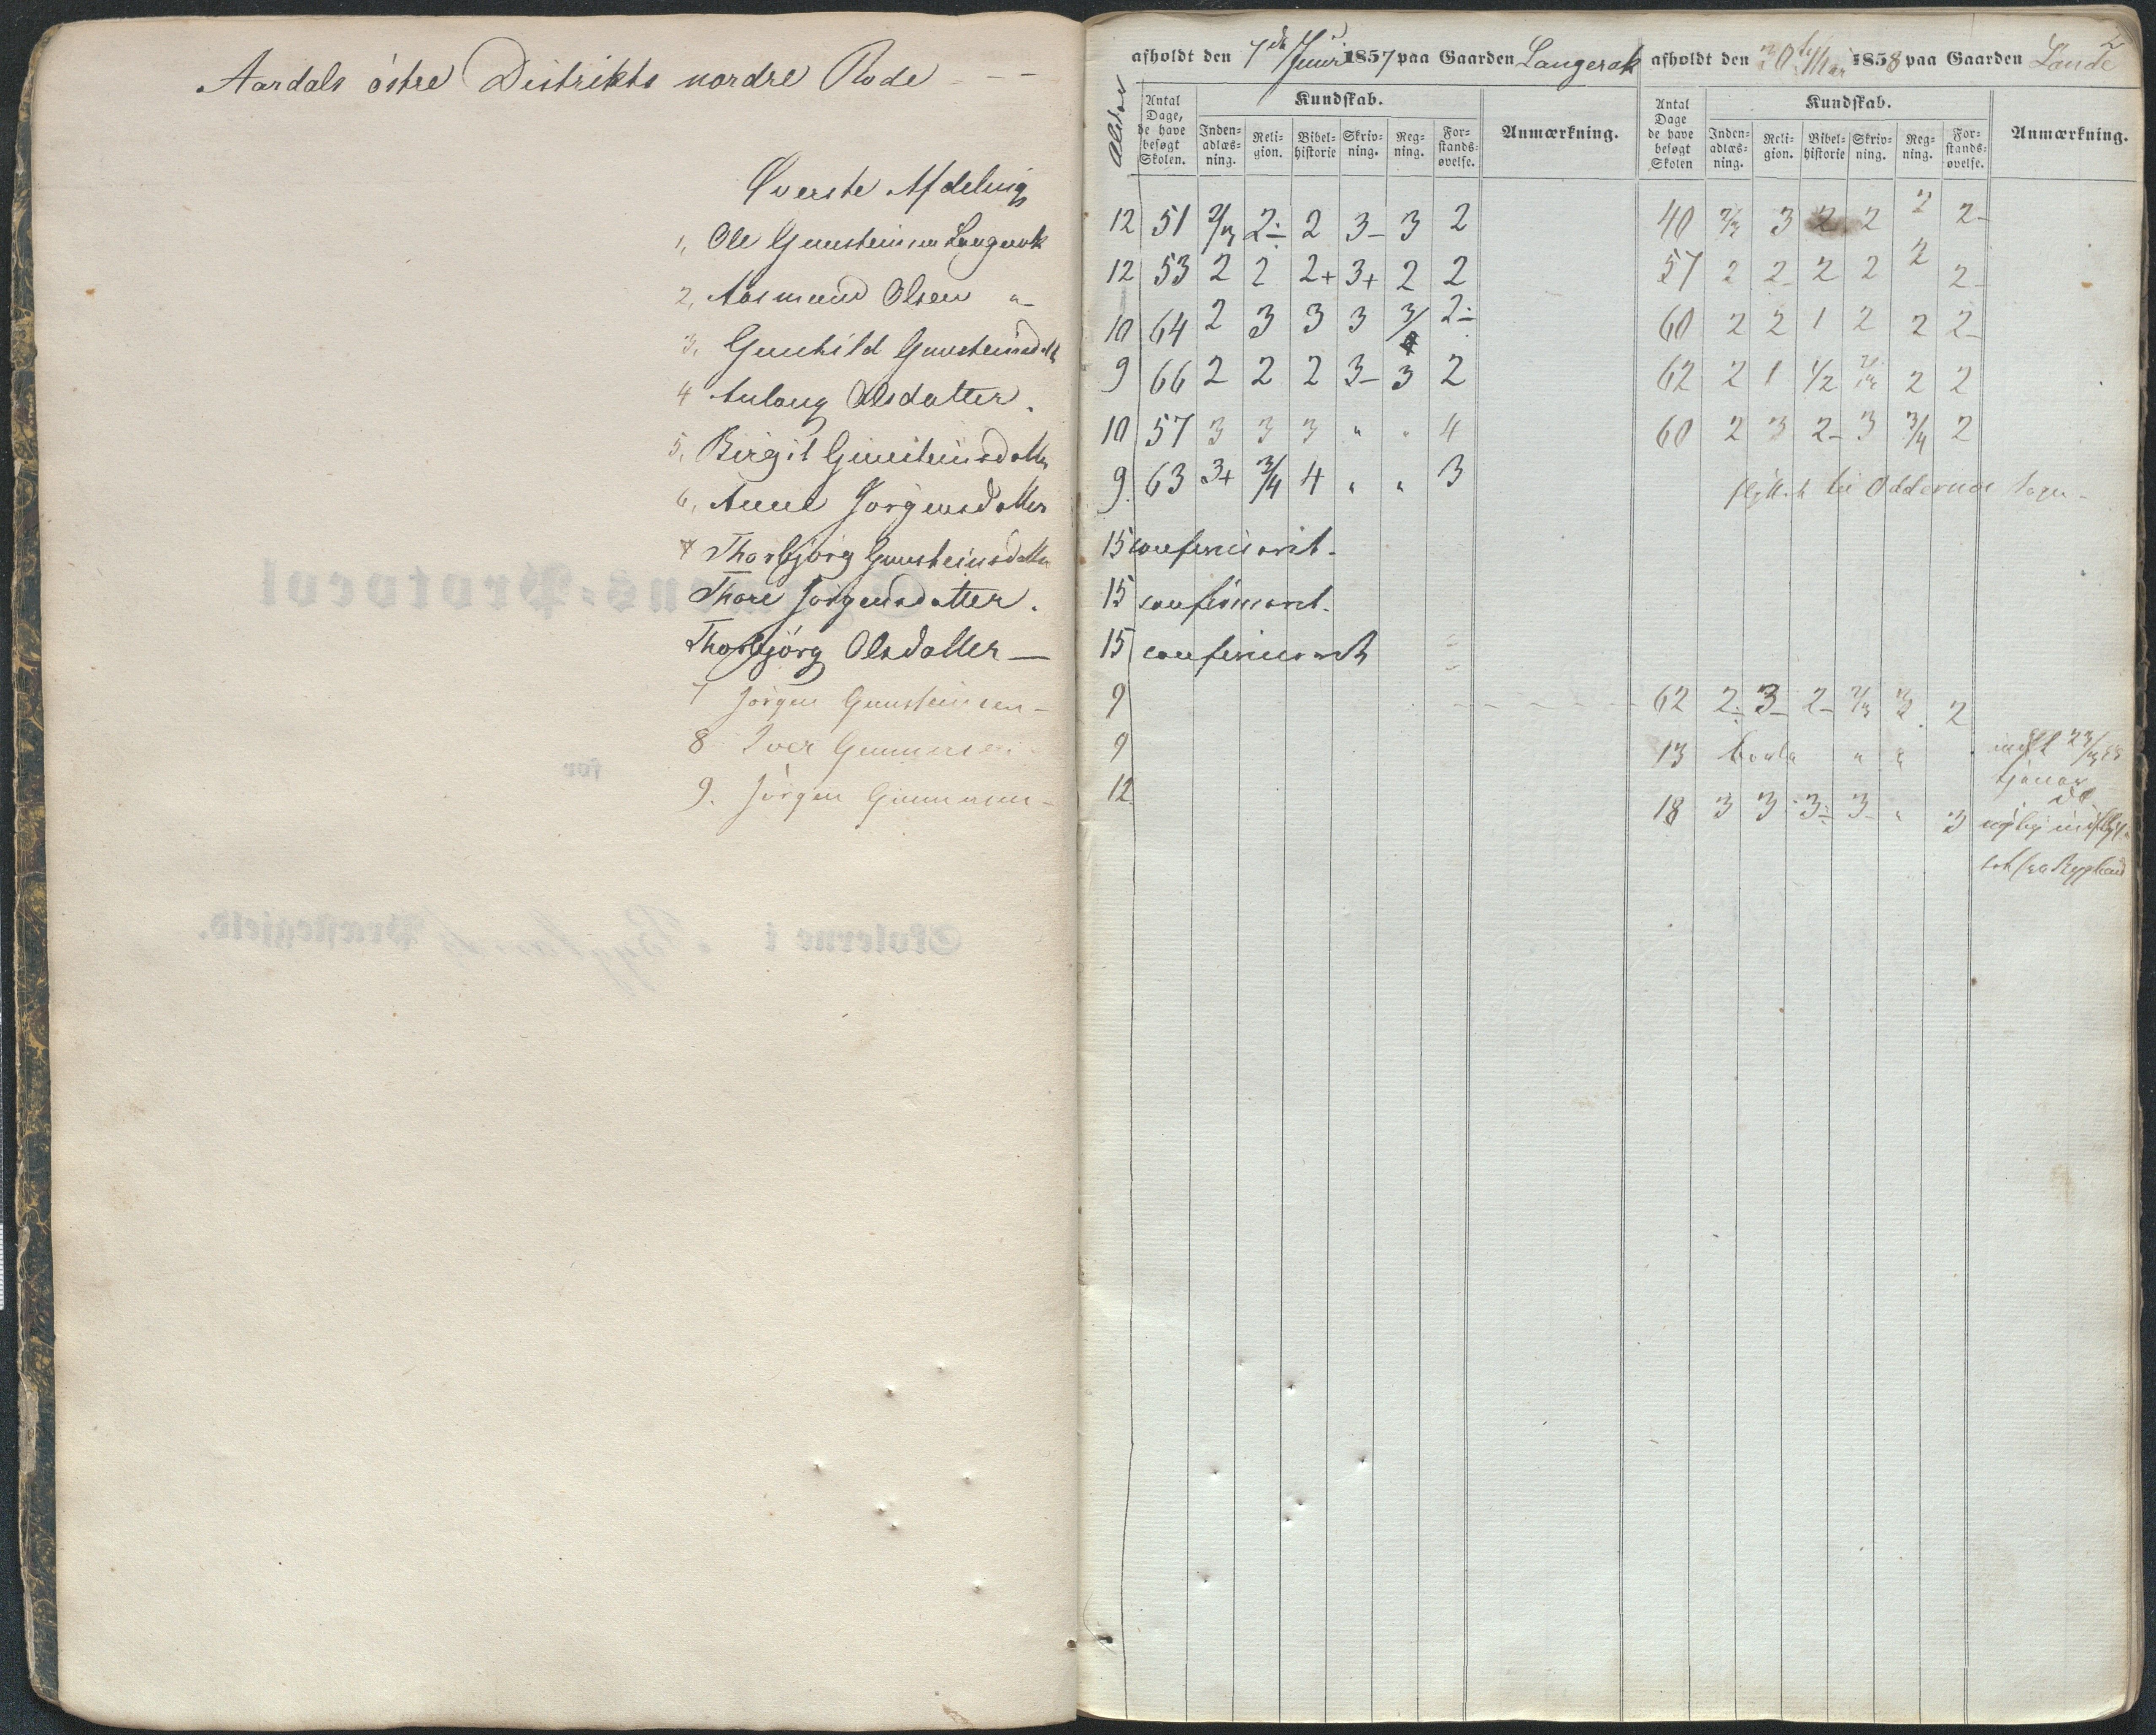 Aardals östre Distrikts nordre Rode
Øverste Afdeling
1, Ole Gunsteinsen Langerak
2, Aasmund Olsen "
3, Gunhild Gunsteinsdatt
4 Anlaug Olsdatter.
5, Birgit Gunsteinsdatter
6, Anne Jörgensdatter
7 Thorbjörg Gunsteinsdatter
Thore Jörgensdatter.
Thorbjörg Olsdatter —
7 Jörgen Gunsteinsen –
8 Iver Gunnersen
9. Jörgen Gunnersen –
afholdt den 7de Juni 1857 paa Gaarden Langerak
Alder
Antal Dage, de have besøgt Skolen.
Kundskab.
Inden-adlæs-ning.
Reli-gion.
Bibel-historie
Skriv-ning.
Reg-ning.
For-stands-øvelse.
Anmærkning.
12 51 2/3 2÷ 2 3- 3 2
12 53 2 2 2+ 3+ 2 2
10 64 2 3 3 3 3/4 2÷
9 66 2 2 2 3- 3 2
10 57 3 3 3 " " 4
9. 63 3+ 3/4 4 " " 3
15 confirmeret.
15 confirmeret.
15 confirmeret
9
9
12
2
afholdt den 30te Mar 1858 paa Gaarden Lande
Antal Dage de have besøgt Skolen
Kundskab.
Inden-adlæs-ning.
Reli-gion.
Bibel-historie
Skriv-ning.
Reg-ning.
For-stands-øvelse.
Anmærkning.
40 2/3 3 2 2 2 2-
57 2 2- 2 2 2 2-
60 2 2 1 2 2 2-
62 2 1 1/2 2/3 2 2
60 2 3 2- 3 3/4 2
flyttet til Oddernæs Sogn
62 2÷ 3- 2- 2/3 3 2
13 borte " "
18 3 3 3÷ 3- " 3